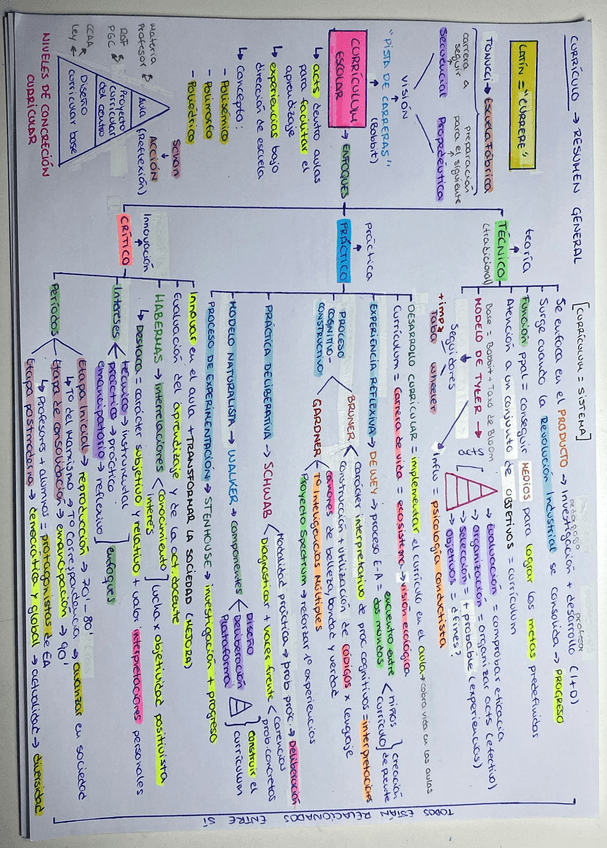 CURRÍCULO → RESUMEN GENERAL
LATÍN = "CURRERE"
TONUCCI → ESCUELA FÁBRICA
carrera a seguir
preparación para el siguiente
Secuencial
Propedéutica
VISIÓN
"PISTA DE CARRERAS" (Bobbit)
CURRÍCULUM ESCOLAR → ENFOQUES
↳ acts dentro aulas para facilitar el aprendizaje
↳ experiencias bajo dirección de escuela
↳ concepto:
- Polisémico
- Poliédrico
Materia Profesor
PGC
CCAA
Ley
Aula (Reflexión)
Proyecto curricular del centro
Diseño curricular base
ACCIÓN
NIVELES DE CONCRECIÓN CURRICULAR
teoría
TÉCNICO (tradicional)
[CURRÍCULUM = SISTEMA]
Se enfoca en el PRODUCTO → investigación + desarrollo (I+D)
profesor
Surge cuando la Revolución Industrial se consolida → PROGRESO
Función ppal = conseguir MEDIOS para lograr las metas predefinidas
Atención a un conjunto de objetivos = currículum
Base = Bobbit + Taxo de Bloom
MODELO DE TYLER →
acts
→ Evaluación = comprobar eficacia
→ organización = organizar acts (efectivo)
→ selección = + probable (experiencias)
→ Objetivos = ¿fines?
Seguidores
+ impz Taba
Wheeler
Influ = psicología conductista
práctica
PRÁCTICO
DESARROLLO CURRICULAR = implementar el currículo en el aula + cobra vida en las aulas
Currículum = carrera de vida = ecosistema → visión ecológica
EXPERIENCIA REFLEXIVA → DEWEY → proceso E-A = encuentro entre dos mundos < niños currículo } creación de puente
PROCESO COGNITIVO-CONSTRUCTIVO
BRUNER < carácter interpretativo de proc. cognitivos = interpretación
construcción + utilización de códigos x lenguaje
GARDNER < nociones de belleza, bondad y verdad
Tª Inteligencias Múltiples
Proyecto Spectrum → reforzar tª experiencias
PRÁCTICA DELIBERATIVA → SCHWAB < modalidad práctica → prob. proc. → Deliberación
Diagnosticar + hacer frente < carencias prob. concretos
MODELO NATURALISTA → WALKER → componentes < Diseño Deliberación Plataforma } construir el currículum
PROCESO DE EXPERIMENTACIÓN → STENHOUSE → investigación + progreso
Innovación
CRÍTICO
Innovar en el aula + TRANSFORMAR LA SOCIEDAD (MEJORA)
Evaluación del aprendizaje y de la act. docente
HABERMAS → interrelaciones < conocimiento interés ] lucha x objetividad positivista
↳ Destaca = carácter subjetivo y relativo + valor interpretaciones personales
Intereses < técnico → instrumental
práctico → práctico
emancipatorio → reflexivo ] enfoques
Períodos
Etapa Inicial → reproducción → 70' - 80'
Etapa de consolidación → emancipación → 90'
↳ Profesores - alumnos = protagonistas de EA
Etapa postmoderna → democrática y global → actualidad → diversidad
TODOS ESTÁN RELACIONADOS ENTRE SÍ